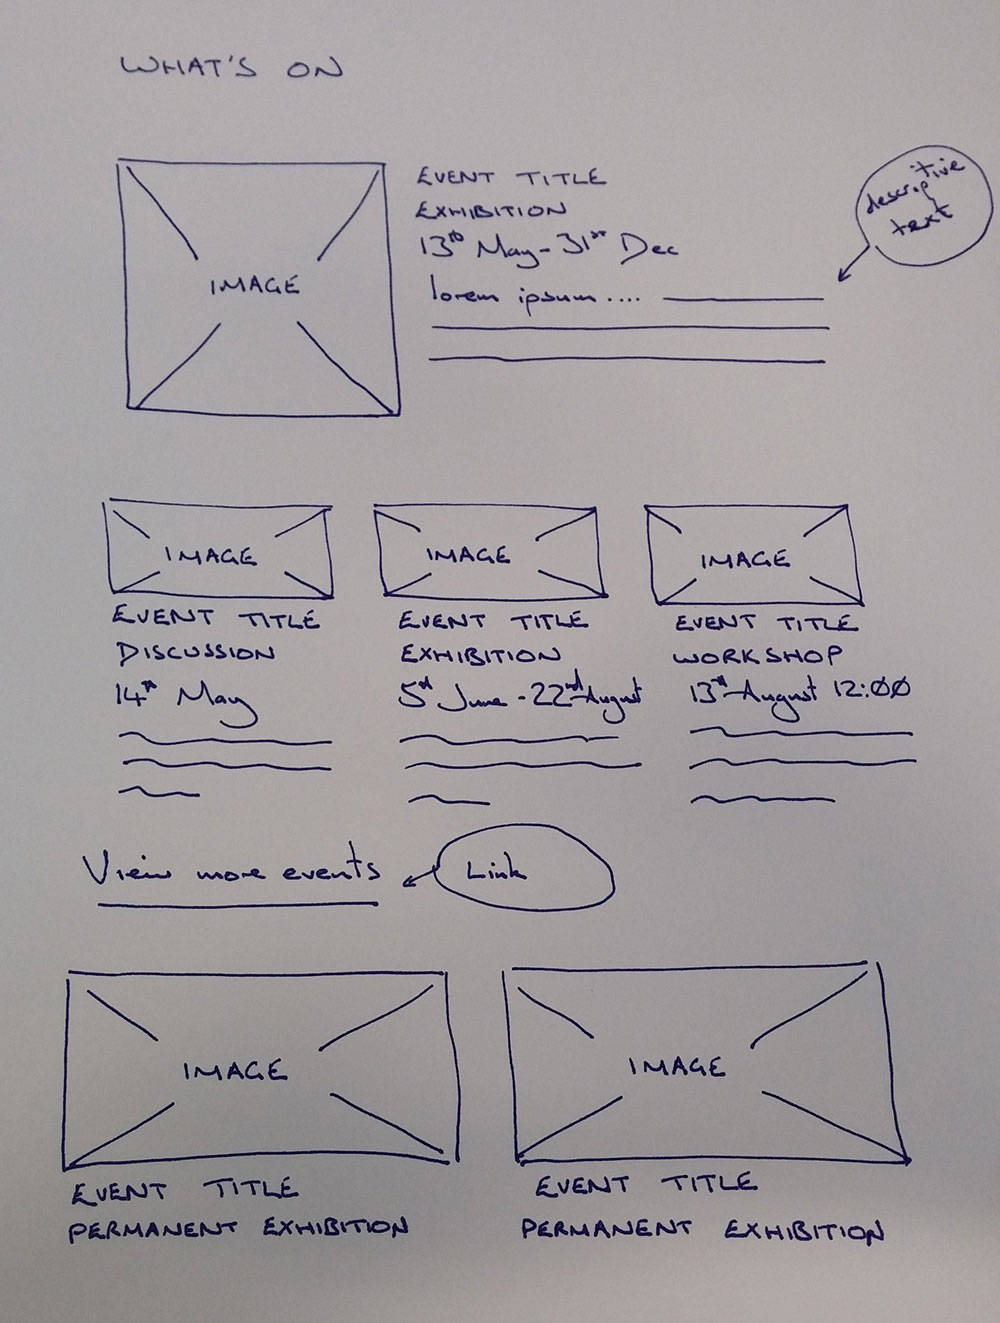 WHAT'S ON
IMAGE
EVENT TITLE
EXHIBITION
13th May - 31st Dec
lorem ipsum ....
descriptive
text
IMAGE
EVENT TITLE
DISCUSSION
14th May
IMAGE
EVENT TITLE
EXHIBITION
5st June - 22nd August
IMAGE
EVENT TITLE
WORKSHOP
13th August 12:00
View more events
Link
IMAGE
EVENT TITLE
PERMANENT EXHIBITION
IMAGE
EVENT TITLE
PERMANENT EXHIBITION